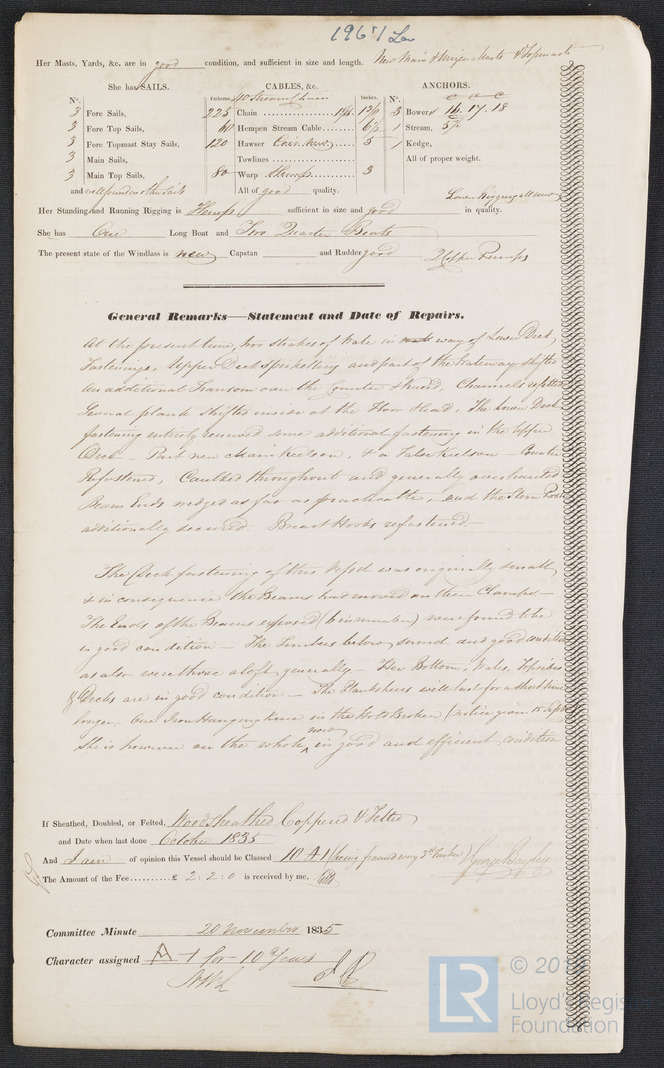 1967 Lon
Her Masts, Yards, &c. are in good condition, and sufficient in size and length. New Main & Mizen Masts & Topmasts
She has SAILS.
Nº.
3 Fore Sails,
3 Fore Top Sails,
3 Fore Topmast Stay Sails,
3 Main Sails,
3 Main Top Sails,
and well found in other Sails
CABLES, &c.
Fathoms. Inches.
225 Chain
60 Hempen Stream Cable
120 Hawser Coir New 5
Towlines
80 Warp Hemp 3
All of good quality.
ANCHORS.
Nº. c c c
3 Bowers 16. 17. 18
1 Stream,
1 Kedge,
All of proper weight.
Lower Rigging All new
Her Standing and Running Rigging is Hemp sufficient in size and good in quality.
She has One Long Boat and Two Quarter Boats
The present state of the Windlass is new Capstan and Rudder good 2 Copper Pumps
General Remarks—Statement and Date of Repairs.
At the present time, two strakes of Wale in way of Lower Deck
Fastenings, Upper Deck Spirketting and part of the Waterway shifted
An additional Transom over the Counter & Channels refitted
Several plank shifted inside at the Floor Head. The Lower Deck
fastening entirely renewed some additional fastening in the Upper
Deck – Part new Main keelson, & a False keelson – Counter
Refastened, Caulked throughout and generally overhauled
Beam Ends wedged as far as practicable, and the Stern Post
additionally secured. Breast Hooks refastened.–
The Deck fastening of this Vessel was originally small
& in consequence the Beams had moved on their Clamps–
The Ends of the Beams exposed (6 in number) were found to be
in good condition – The Timbers below, sound and good condition
as also were those aloft, generally – Her Bottom, Wales, Topsides
& Decks are in good condition – The Planksheers will last for a short time
longer, One Iron Hanging knee in the Hold Broken (notice given 15 Sept
now
She is however on the whole ^ in good and efficient condition
If Sheathed, Doubled, or Felted, Wood sheathed Coppered & Felted
and Date when last done October 1835
And I am of opinion this Vessel should be Classed 10 A 1 (being framed
The Amount of the Fee........£ 2 : 2 : 0 is received by me,
Committee Minute 20 November 1835
Character assigned A 1 for 10 Years
LR
© 20
Lloyd's Register
Foundation